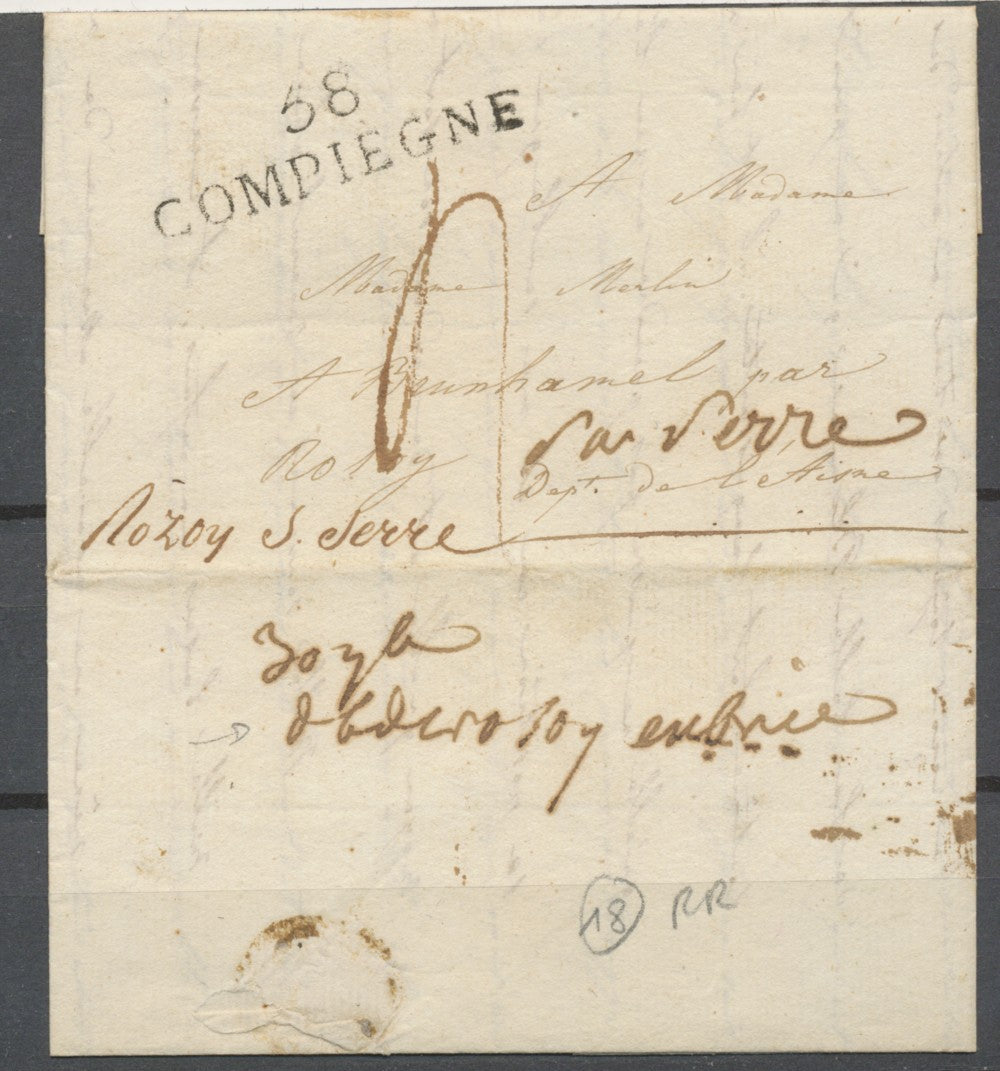 58
COMPIÈGNE
A Madame
Madame Merlin
A Brunhamel par
Rozoy Sur Serre
Dept. de L'Aisne
Rozoy S. Serre
en brie
18 RR